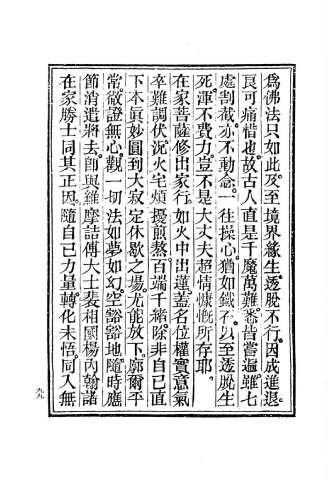 為佛法只如此及至境界緣生透脫不行因成進退
良可痛惜也故古人直是千魔萬難悉皆嘗遍雖七
處割截亦不動念一往操心猶如鐵石以至透脫生
死渾不費力豈不是大丈夫超情慷慨所存耶
在家菩薩修出家行如火中出蓮蓋名位權實意氣
卒難調伏況火宅煩擾煎熬百端千緒除非自己直
下本真妙圓到大寂定休歇之場尤能放下廓爾平
常徹證無心觀一切法如夢如幻空豁豁地隨時應
節消遣將去即與維摩詰傅大士裴相國楊內翰諸
在家勝士同其正因隨自己力量轉化未悟同入無
九九